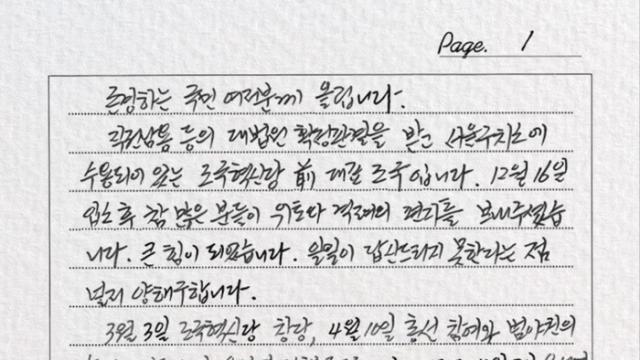 Page. 1
존경하는 국민 여러분께 올립니다.
직권남용 등의 대법원 확정판결을 받고 서울구치소에
수용되어 있는 조국혁신당 前 대표 조국입니다. 12월 16일
입소 후 참 많은 분들이 위로와 격려의 편지를 보내주셨습
니다. 큰 힘이 되었습니다. 일일이 답신드리지 못한다는 점
널리 양해구합니다.
3월 3일 조국혁신당 창당, 4월 10일 총선 참여와 범야권의